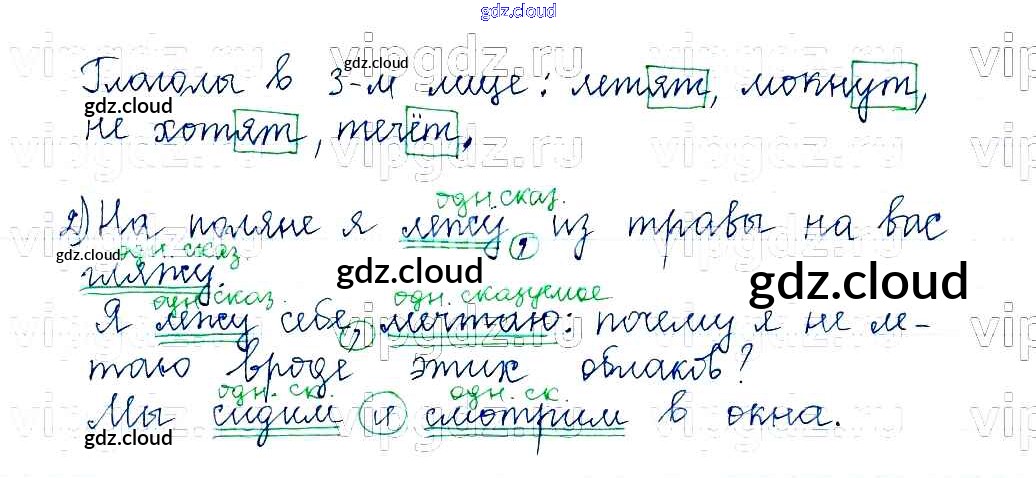 gdz.cloud
Глаголы в 3-м лице: летят, мокнут,
gdz.cloud
gdz.cloud
не хотят, течёт.
одн. сказ.
2) На поляне я лежу, из травы на вас
одн. сказ.
gdz.cloud
гляжу.
gdz.cloud
gdz.cloud
одн. сказ. одн. сказуемое
Я лежу себе, мечтаю: почему я не ле-
таю вроде этих облаков?
одн. ск. одн. ск.
Мы сидим и смотрим в окна.
gdz.cloud
vipgdz.ru